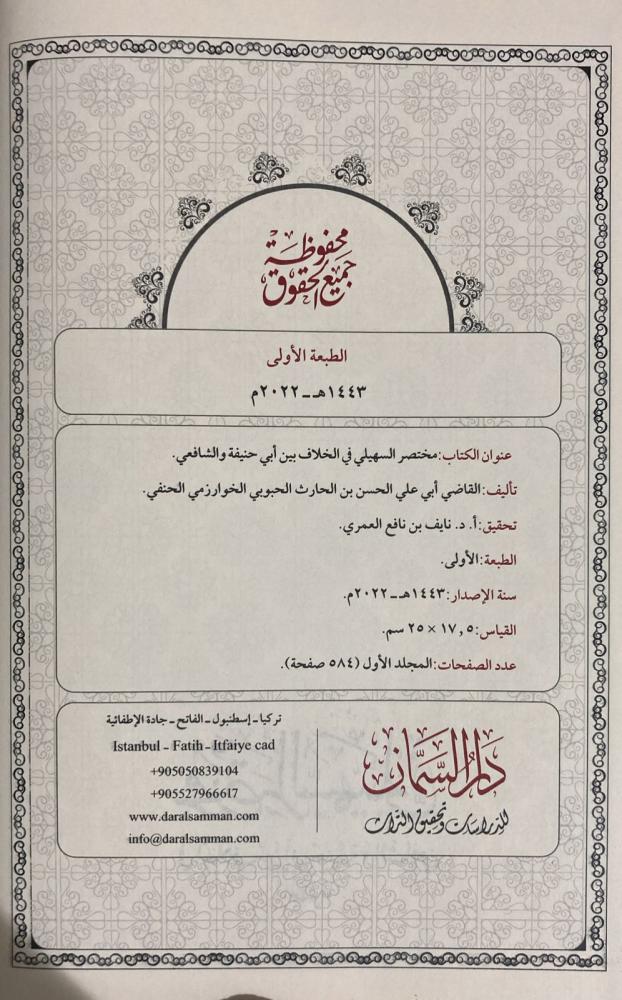 جميع الحقوق
محفوظة
الطبعة الأولى
١٤٤٣هـ ـ ٢٠٢٢م
عنوان الكتاب: مختصر السهيلي في الخلاف بين أبي حنيفة والشافعي.
تأليف: القاضي أبي علي الحسن بن الحارث الحبوبي الخوارزمي الحنفي.
تحقيق: أ. د. نايف بن نافع العمري.
الطبعة: الأولى.
سنة الإصدار: ١٤٤٣هـ ـ ٢٠٢٢م.
القياس: ١٧,٥ × ٢٥ سم.
عدد الصفحات: المجلد الأول (٥٨٤ صفحة).
دار السمان
للدراسات وتحقيق التراث
تركيا ـ إسطنبول ـ الفاتح ـ جادة الإطفائية
Istanbul - Fatih - Itfaiye cad
+905050839104
+905527966617
www.daralsamman.com
info@daralsamman.com